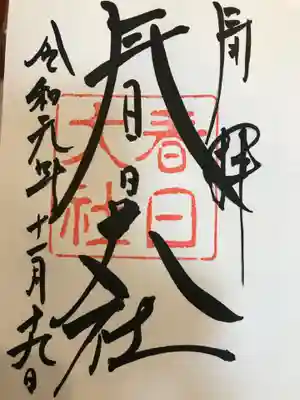 奉拝
春日大社
春日大社
令和元年十一月十九日